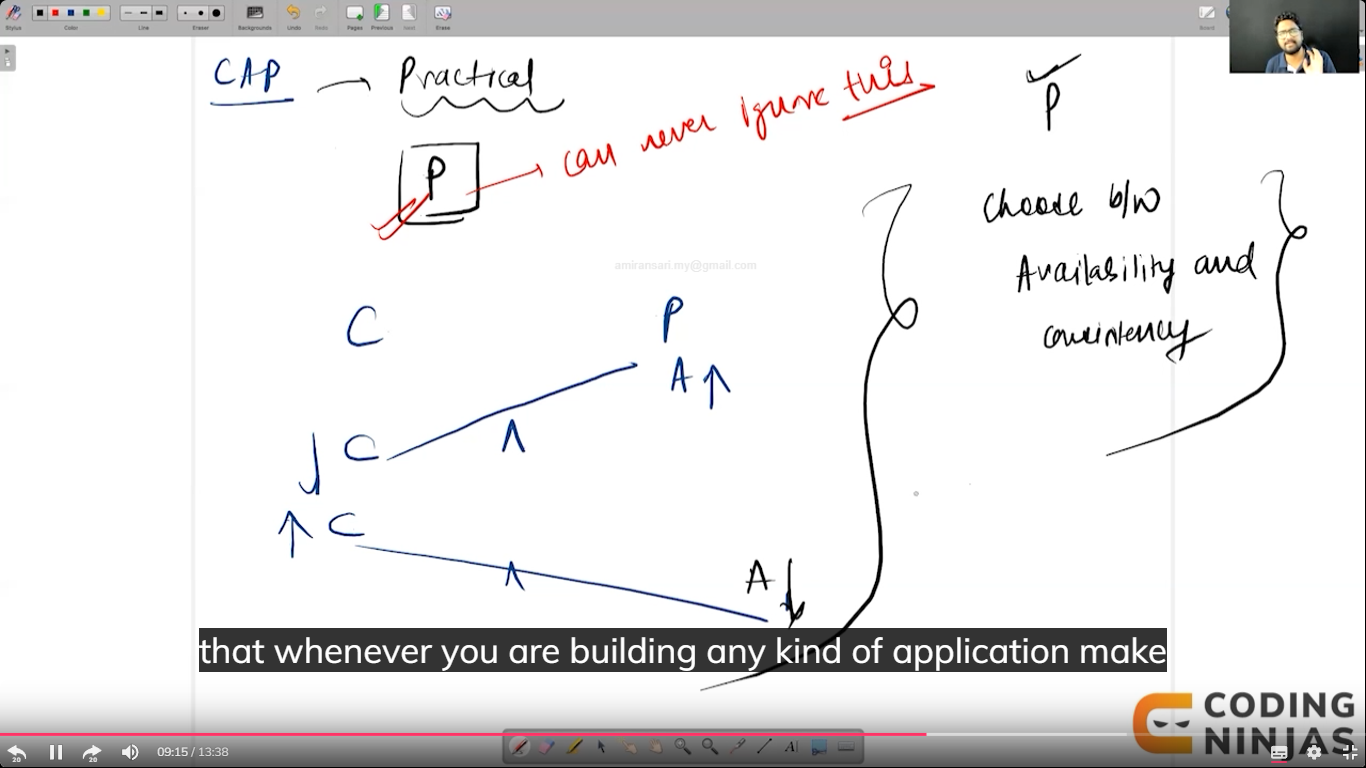 Stylus
Color
Line
Eraser
Backgrounds
Undo
Redo
Pages
Previous
Next
Erase
Board
CAP → Practical
P → can never ignore this
P
Choose b/w
Availability and
consistency
amiransari.my@gmail.com
C P
A ↑
↓ C
↑ C
A ↓
that whenever you are building any kind of application make
CODING
NINJAS
20
20
09:15 / 13:38